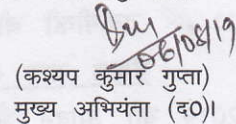 06/08/19
(कश्यप कुमार गुप्ता)
मुख्य अभियंता (द0)।